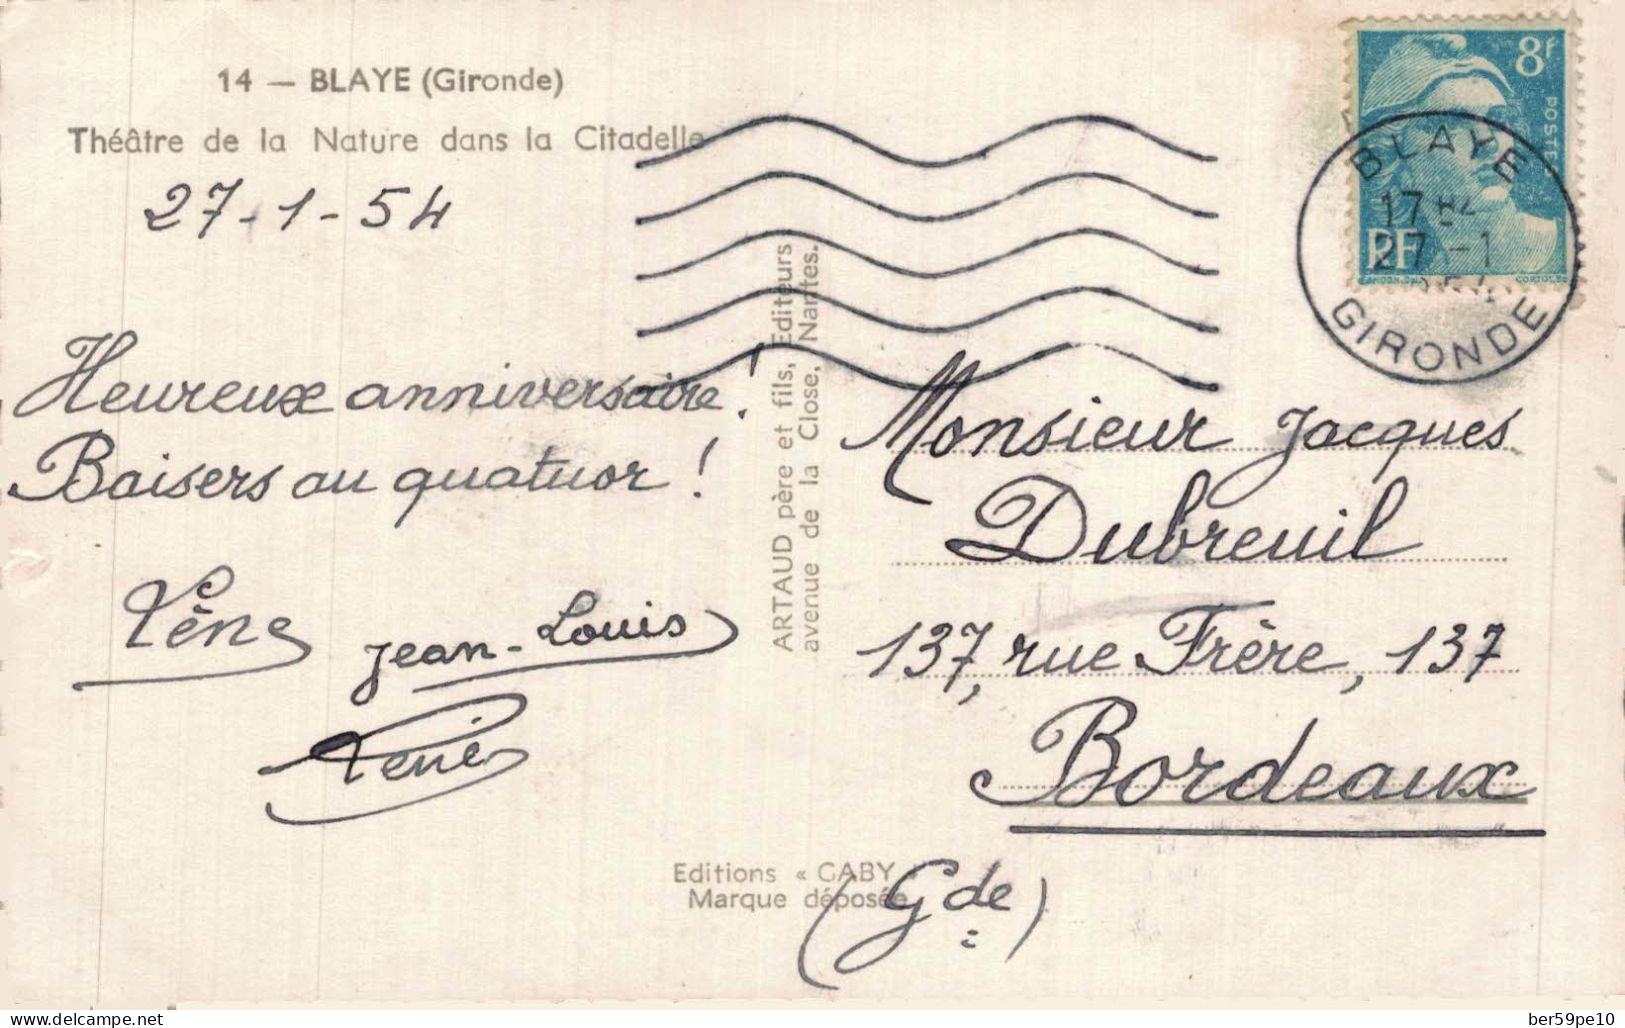 14 — BLAYE (Gironde)
Théâtre de la Nature dans la Citadelle
27-1-54
Heureux anniversaire!
Baisers au quatuor!
Jean-Louis
ARTAUD père et fils, Editeurs
avenue de la Close, Nantes.
Editions « GABY »
Marque déposée
8F
POSTES
RF
GANDON DEL.
BLAYE
27-1
GIRONDE
Monsieur Jacques
Dubreuil
137, rue Frère, 137
Bordeaux
(Gde)
ber59pe10
www.delcampe.net